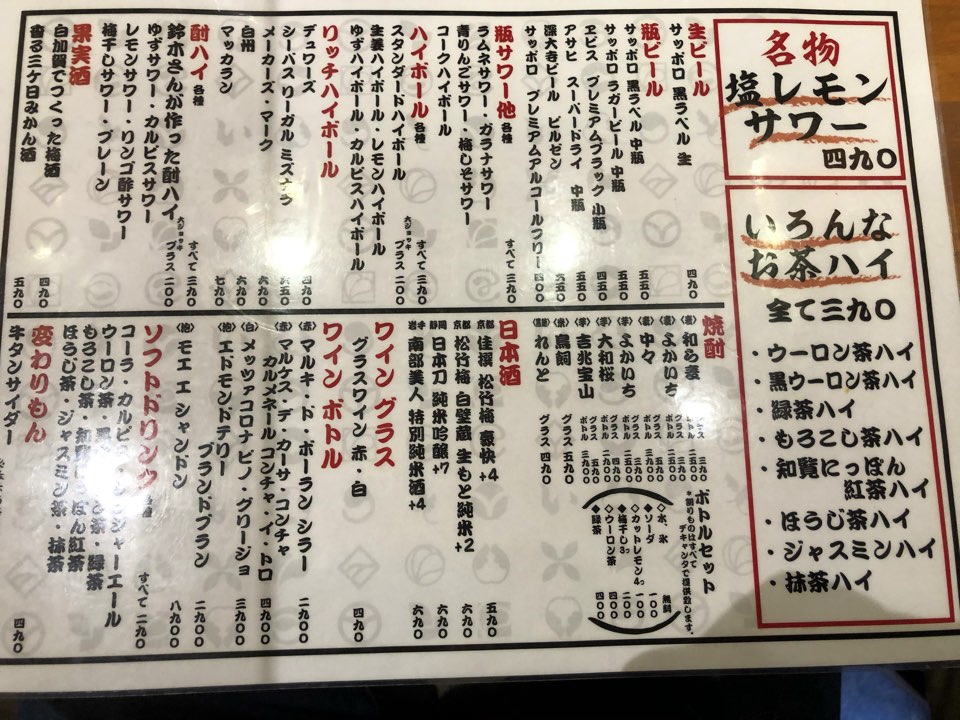 名物
塩レモン
サワー
四九〇
いろんな
お茶ハイ
全て三九〇
・ウーロン茶ハイ
・黒ウーロン茶ハイ
・緑茶ハイ
・もろこし茶ハイ
・知覧にっぽん
紅茶ハイ
・ほうじ茶ハイ
・ジャスミンハイ
・抹茶ハイ
生ビール
サッポロ 黒ラベル 生 四九〇
瓶ビール
サッポロ 黒ラベル 中瓶 五五〇
サッポロ ラガービール 中瓶 五五〇
ヱビス プレミアムブラック 小瓶 五四〇
アサヒ スーパードライ 中瓶 五五〇
深大寺ビール ピルゼン 六五〇
サッポロ プレミアムアルコールフリー 四〇〇
瓶サワー他 各種 すべて 三九〇
ラムネサワー・ガラナサワー
青りんごサワー・梅しそサワー
コークハイボール
ハイボール 各種 すべて 三九〇
スタンダードハイボール 大ジョッキ プラス 二〇〇
生姜ハイボール・レモンハイボール
ゆずハイボール・カルピスハイボール
リッチハイボール
デュワーズ 四九〇
シーバスリーガル ミズナラ 六五〇
メーカーズ・マーク 六九〇
白州 六九〇
マッカラン 七九〇
酎ハイ 各種 すべて 三九〇
鈴木さんが作った酎ハイ 大ジョッキ プラス 二〇〇
ゆずサワー・カルピスサワー
レモンサワー・リンゴ酢サワー
梅干しサワー・プレーン
果実酒
白加賀でつくった梅酒 四九〇
香る三ケ日みかん酒 五九〇
焼酎
〈麦〉和ら麦 グラス 三九〇
ボトル 二五〇〇
〈麦〉よかいち
〈麦〉中々
〈芋〉よかいち
〈芋〉大和桜
〈芋〉吉兆宝山
〈米〉鳥飼 グラス 五九〇
れんと グラス 四九〇
ボトルセット
*割りものはすべて
デキャンタで提供致します。
◇水、氷 無料
◆ソーダ 一〇〇
◇カットレモン4っ 一〇〇
◆梅干し3っ 二〇〇
◇ウーロン茶 四〇〇
◆緑茶 四〇〇
日本酒
京都 佳撰 松竹梅 豪快+4 五九〇
京都 松竹梅 白壁蔵 生もと純米+2 六九〇
静岡 日本刀 純米吟醸+7 六九〇
岩手 南部美人 特別純米酒+4 六九〇
ワイングラス
グラスワイン 赤・白 四九〇
ワインボトル
〈赤〉マルキ・ド・ボーラン シラー 二九〇〇
〈赤〉マルケス・デ・カーサ・コンチャ
カルメネール コンチャ・イ・トロ 四九〇〇
〈白〉メッツァコロナ ピノ・グリージョ 三九〇〇
〈泡〉エドモンテリー
ブランドブラン 二九〇〇
〈泡〉モエ エ シャンドン 八九〇〇
ソフトドリンク 各種 すべて 二九〇
コーラ・カルピス・ジンジャーエール
ウーロン茶・緑茶
もろこし茶・紅茶
ほうじ茶・ジャスミン茶・抹茶
変わりもん
牛タンサイダー 四九〇